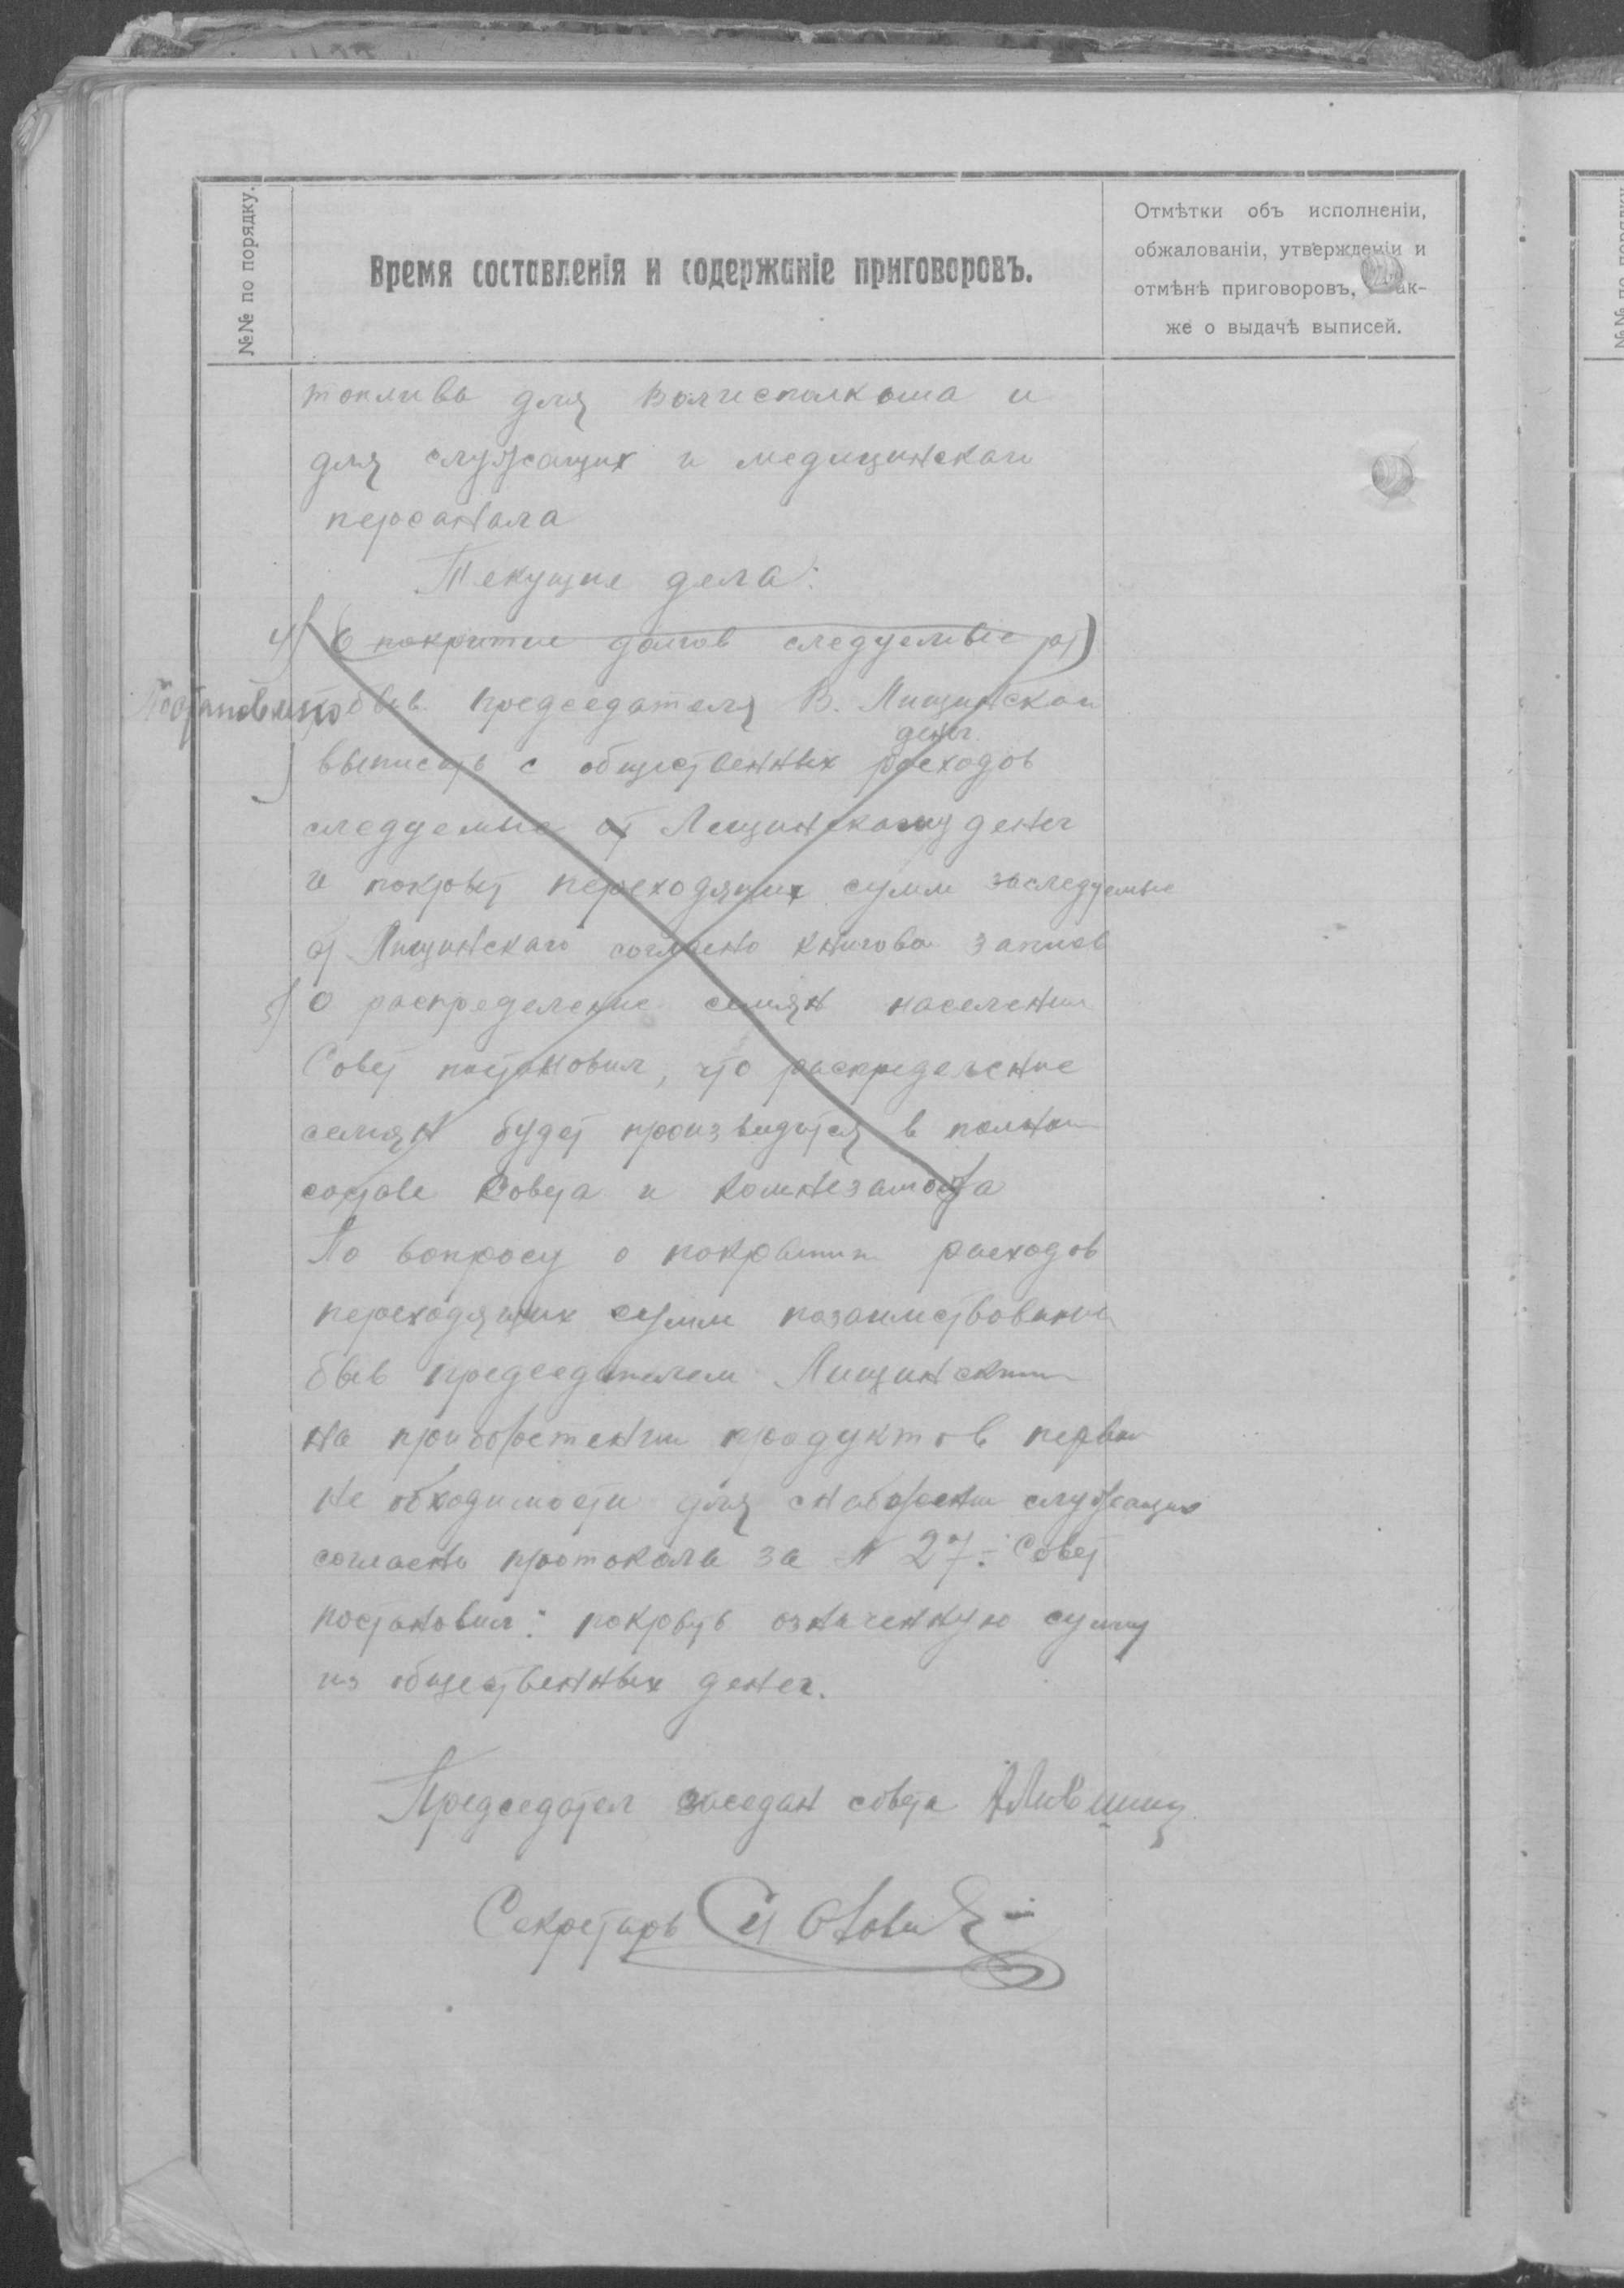 №№ по порядку.
Время составленія и содержаніе приговоровъ.
Отмѣтки объ исполненіи,
обжалованіи, утвержденіи и
отмѣнѣ приговоровъ, ак-
же о выдачѣ выписей.
топлива для волисполкома и
для служащих и медицинскаго
персанала
Текущие дела:
4) О покрытие долгов следуемые от
Постановлено быв. председателя В. Лищинской
денег
выписать с общественных расходов
следуемые от Лищинскому денег
и покрыт переходящих сумм заследуемые
от Лищинскаго согласно книгова запись
5) О распределение семян населения
Совет постановил, что распределение
семян будет производится в полном
составе Совета и комнезаможа
По вопросу о покрытии расходов
переходящих сумм позаимствования
быв председателем Лищинским
на приобретении продуктов первой
не обходимости для снабжени служащих
согласно протокола за N 27. Совет
постановил: покрыть означенную сумму
из общественных денег.
Председател заседан совета
Секретарь